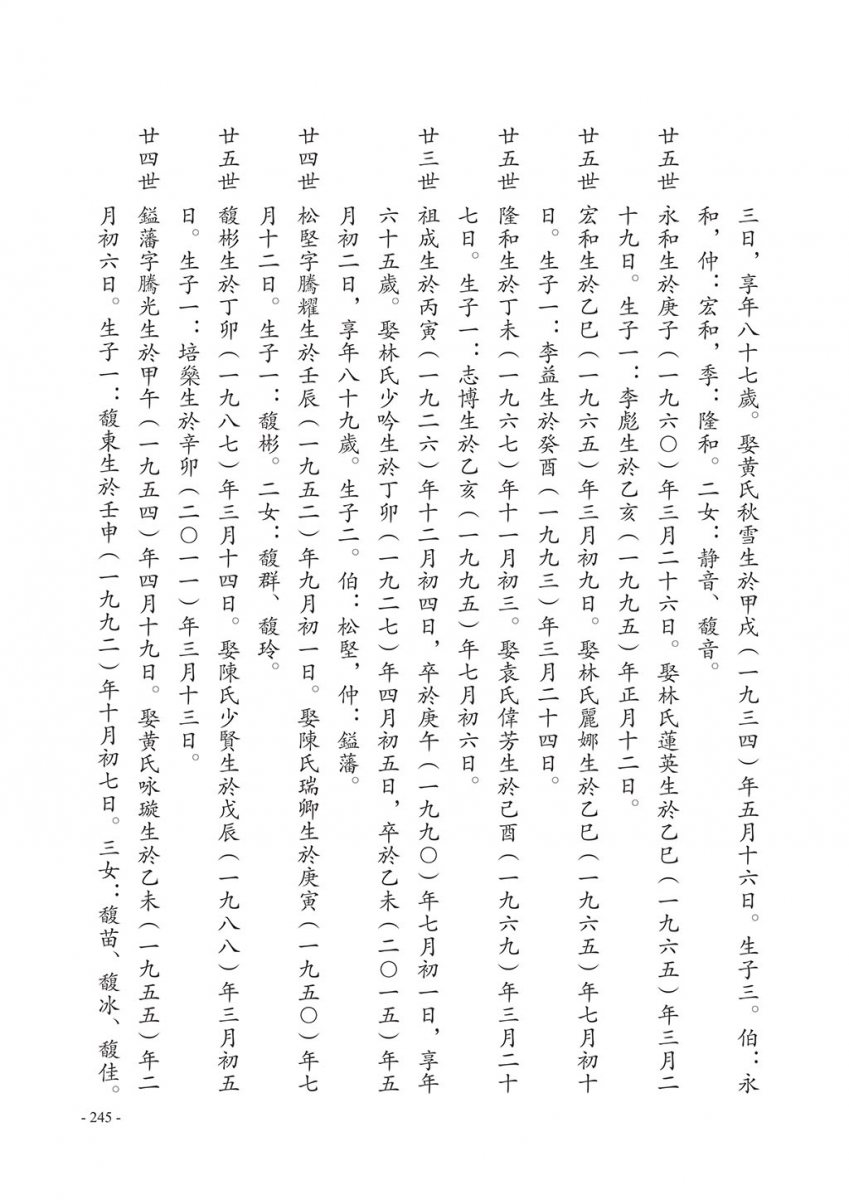 三日，享年八十七歲。娶黃氏秋雪生於甲戌（一九三四）年五月十六日。生子三。伯：永
和，仲：宏和，季：隆和。二女：静音、馥音。
廿五世 永和生於庚子（一九六〇）年三月二十六日。娶林氏蓮英生於乙巳（一九六五）年三月二
十九日。生子一：李彪生於乙亥（一九九五）年正月十二日。
廿五世 宏和生於乙巳（一九六五）年三月初九日。娶林氏麗娜生於乙巳（一九六五）年七月初十
日。生子一：李益生於癸酉（一九九三）年三月二十四日。
廿五世 隆和生於丁未（一九六七）年十一月初三。娶袁氏偉芳生於己酉（一九六九）年三月二十
七日。生子一：志博生於乙亥（一九九五）年七月初六日。
廿三世 祖成生於丙寅（一九二六）年十二月初四日，卒於庚午（一九九〇）年七月初一日，享年
六十五歲。娶林氏少吟生於丁卯（一九二七）年四月初五日，卒於乙未（二〇一五）年五
月初二日，享年八十九歲。生子二。伯：松堅，仲：鎰藩。
廿四世 松堅字騰耀生於壬辰（一九五二）年九月初一日。娶陳氏瑞卿生於庚寅（一九五〇）年七
月十二日。生子一：馥彬。二女：馥群、馥玲。
廿五世 馥彬生於丁卯（一九八七）年三月十四日。娶陳氏少賢生於戊辰（一九八八）年三月初五
日。生子一：培燊生於辛卯（二〇一一）年三月十三日。
廿四世 鎰藩字騰光生於甲午（一九五四）年四月十九日。娶黃氏咏璇生於乙未（一九五五）年二
月初六日。生子一：馥東生於壬申（一九九二）年十月初七日。三女：馥苗、馥冰、馥佳。
- 245 -